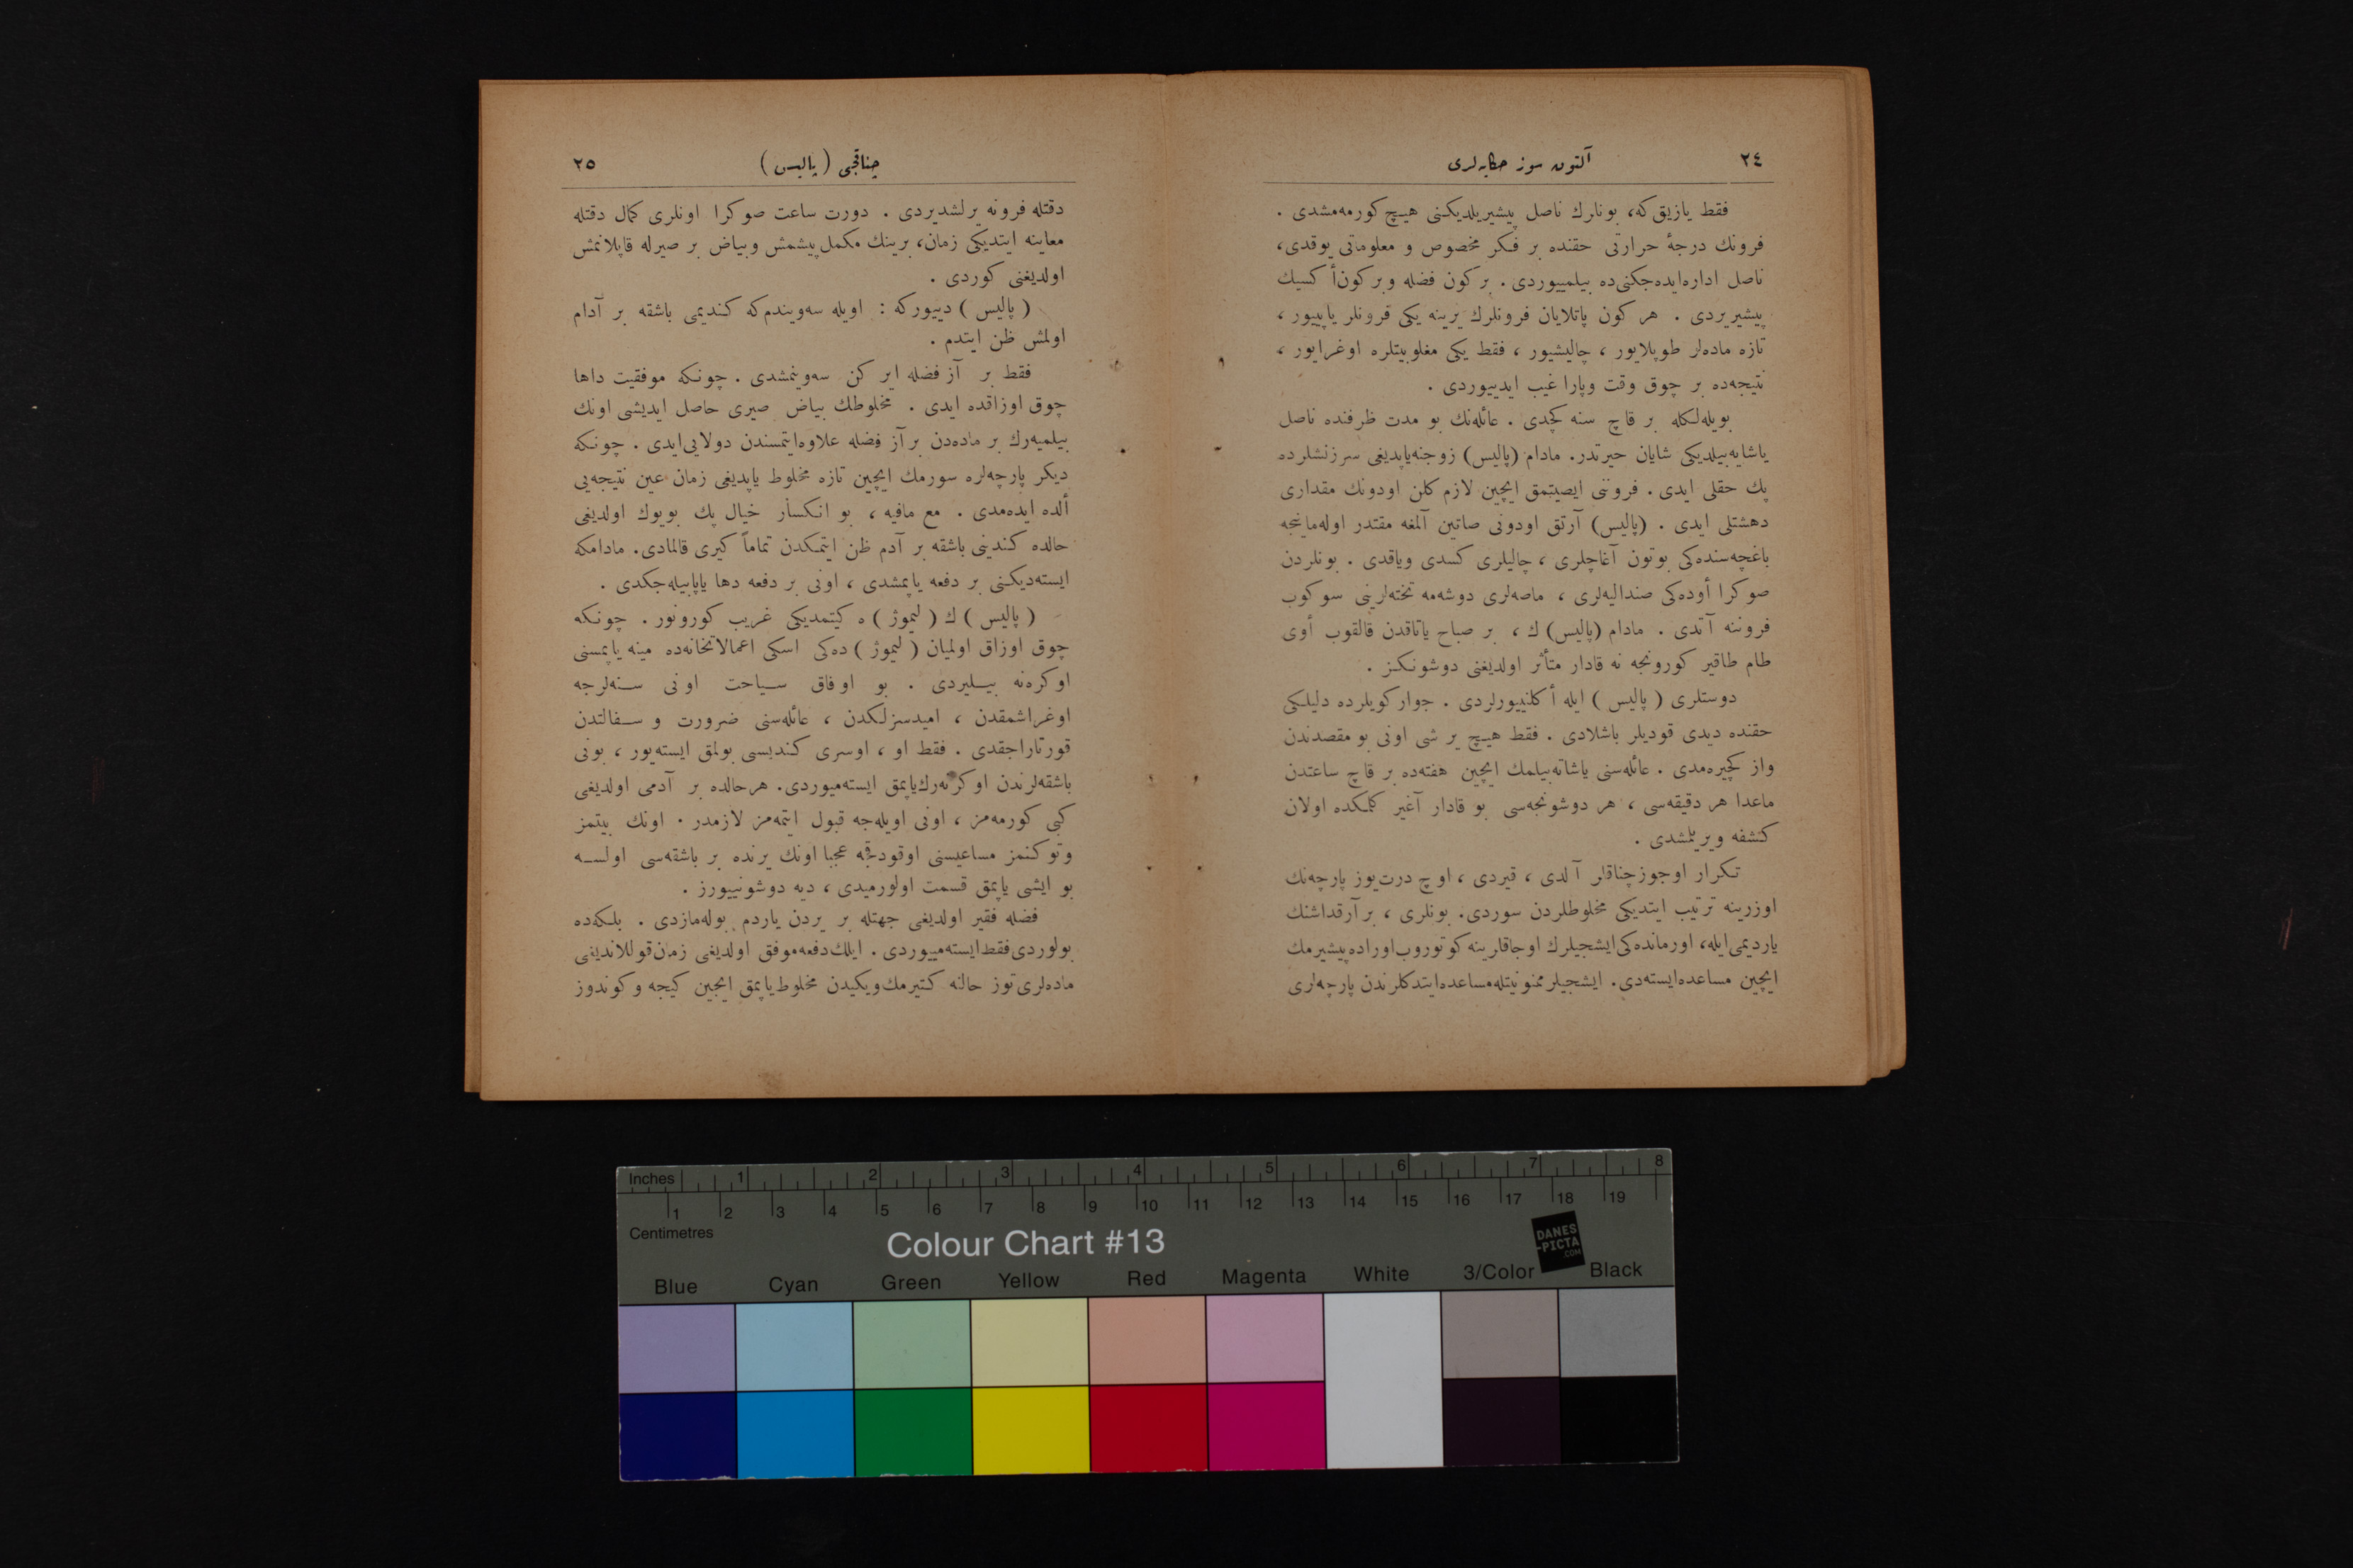 ٢٤
آلتون سوز حکایه‌لری
فقط یازیق‌که، بونلرك ناصل پیشیریلدیکنی هیچ کورمه‌مشدی .
فرونك درجهٔ حرارتی حقنده بر فکر مخصوص و معلوماتی یوقدی،
ناصل اداره‌ایده‌جکنی‌ده بیلمییوردی . بر کون فضله وبر کون‌أ کسیك
پیشیریردی . هر کون پاتلایان فرونلرك یرینه یکی فرونلر یاپییور ،
تازه ماده‌لر طوپلایور ، چالیشیور ، فقط یکی مغلوبیتلره اوغرایور ،
نتیجه‌ده بر چوق وقت وپارا غیب ایدییوردی .
بویله‌لکله بر قاچ سنه کچدی . عائله‌نك بو مدت ظرفنده ناصل
یاشایه‌بیلدیکی شایان حیرتدر. مادام (پالیس) زوجنه‌یاپدیغی سرزنشلرده
پك حقلی ایدی . فروننی ایصیتمق ایچین لازم کلن اودونك مقداری
دهشتلی ایدی . (پالیس) آرتق اودونی صاتین آلمغه مقتدر اوله‌ماینجه
باغچه‌سنده‌کی بوتون آغاچلری ، چالیلری کسدی ویاقدی . بونلردن
صوکرا أوده‌کی صندالیه‌لری ، ماصه‌لری دوشه‌مه تخته‌لرینی سوکوب
فروننه آتدی . مادام (پالیس) ك ، بر صباح یاتاقدن قالقوب أوی
طام طاقیر کورونجه نه قادار متأثر اولدیغنی دوشونکز .
دوستلری ( پالیس ) ایله أکلنییورلردی . جوار کویلرده دلیلکی
حقنده دیدی قودیلر باشلادی . فقط هیچ بر شی اونی بو مقصدندن
واز کچیره‌مدی . عائله‌سنی یاشاته‌بیلمك ایچین هفته‌ده بر قاچ ساعتدن
ماعدا هر دقیقه‌سی ، هر دوشونجه‌سی بو قادار آغیر کلمکده اولان
کشفه ویریلمشدی .
تکرار اوجوز چناقلر آلدی ، قیردی ، اوچ درت‌یوز پارچه‌نك
اوزرینه ترتیب ایتدیکی مخلوطلردن سوردی. بونلری ، بر آرقداشنك
یاردیمی‌ایله، اورمانده‌کی‌ایشجیلرك اوجاقلرینه کوتوروب‌اوراده‌پیشیرمك
ایچین مساعده‌ایسته‌دی. ایشجیلر ممنونیتله‌مساعده‌ایتدکلرندن پارچه‌لری
چناقجی ( پالیس )
٢٥
دقتله فرونه یرلشدیردی . دورت ساعت صوکرا اونلری کمال دقتله
معاینه ایتدیکی زمان، برینك مکمل‌پیشمش وبیاض بر صیرله قاپلانمش
اولدیغنی کوردی .
( پالیس ) دییورکه : اویله سه‌ویندم‌که کندیمی باشقه بر آدام
اولمش ظن ایتدم .
فقط بر آز فضله ایرکن سه‌وینمشدی . چونکه موفقیت داها
چوق اوزاقده ایدی . مخلوطك بیاض صیری حاصل ایدیشی اونك
بیلمیه‌رك بر ماده‌دن بر آز فضله علاوه‌ایتمسندن دولایی‌ایدی . چونکه
دیکر پارچه‌لره سورمك ایچین تازه مخلوط یاپدیغی زمان عین نتیجه‌یی
ألده ایده‌مدی . مع مافیه ، بو انکسار خیال پك بویوك اولدیغی
حالده کندینی باشقه بر آدم ظن ایتمکدن تماماً کیری قالمادی. مادامکه
ایسته‌دیکنی بر دفعه یاپمشدی ، اونی بر دفعه دها یاپابیله‌جکدی .
( پالیس ) ك ( لیموژ ) ه کیتمدیکی غریب کورونور . چونکه
چوق اوزاق اولمیان ( لیموژ ) ده‌کی اسکی اعمالاتخانه‌ده مینه یاپمسنی
اوکره‌نه بیلیردی . بو اوفاق سیاحت اونی سنه‌لرجه
اوغراشمقدن ، امیدسزلکدن ، عائله‌سنی ضرورت و سفالتدن
قورتاراجقدی . فقط او ، اوسری کندیسی بولمق ایسته‌یور ، بونی
باشقه‌لرندن اوکره‌نه‌رك‌یاپمق ایسته‌میوردی. هرحالده بر آدمی اولدیغی
کبی کورمه‌مز ، اونی اویله‌جه قبول ایتمه‌مز لازمدر . اونك بیتمز
وتوکنمز مساعیسنی اوقودقجه عجبا اونك یرنده بر باشقه‌سی اولسه
بو ایشی یاپمق قسمت اولورمیدی ، دیه دوشونییورز .
فضله فقیر اولدیغی جهتله بر یردن یاردم بوله‌مازدی . بلکه‌ده
بولوردی‌فقط‌ایسته‌مییوردی . ایلك‌دفعه‌موفق اولدیغی زمان‌قوللاندیغی
ماده‌لری‌توز حالنه کتیرمك‌ویکیدن مخلوط‌یاپمق ایچین کیجه وکوندوز
Inches 1 2 3 4 5 6 7 8
1 2 3 4 5 6 7 8 9 10 11 12 13 14 15 16 17 18 19
Centimetres
Colour Chart #13
DANES
-PICTA
.COM
Blue Cyan Green Yellow Red Magenta White 3/Color Black